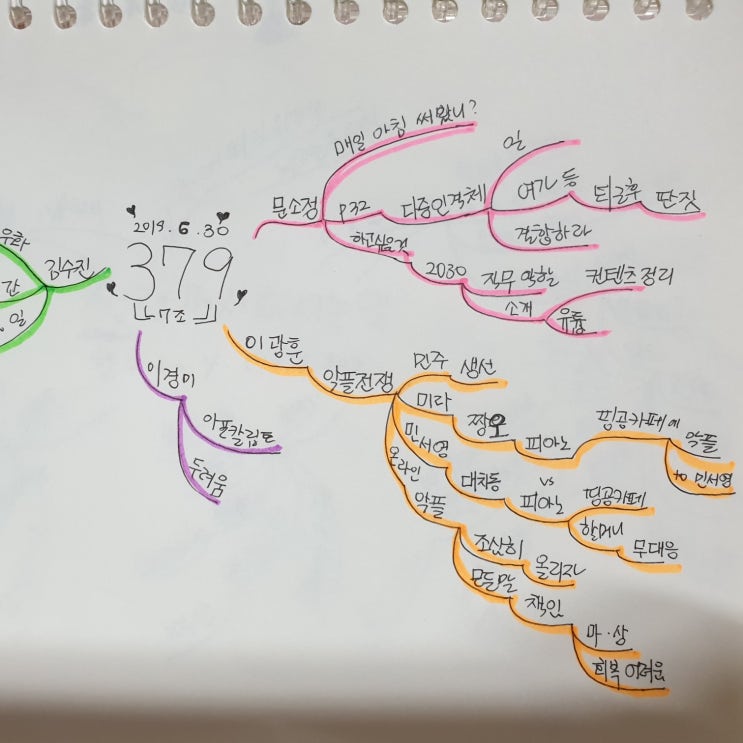 2019. 6. 30
379
7조
문소정
매일 아침 써봤니?
P32
다중인격체
일
여가 등
퇴근후
딴짓
결합하라
하고싶은것
2030
직무 역할
소개
컨텐츠 정리
유튭
이광훈
악플전쟁
민주
생선
미라
짱오
피아노
핑공카페에
악플
to 민서영
민서영
대치동
vs
피아노
핑공카페
할머니
무대응
온라인
악플
조심히
올리자
모든말
책임
마·상
회복 어려운
이경미
아포칼립토
두려움
김수진
간
일